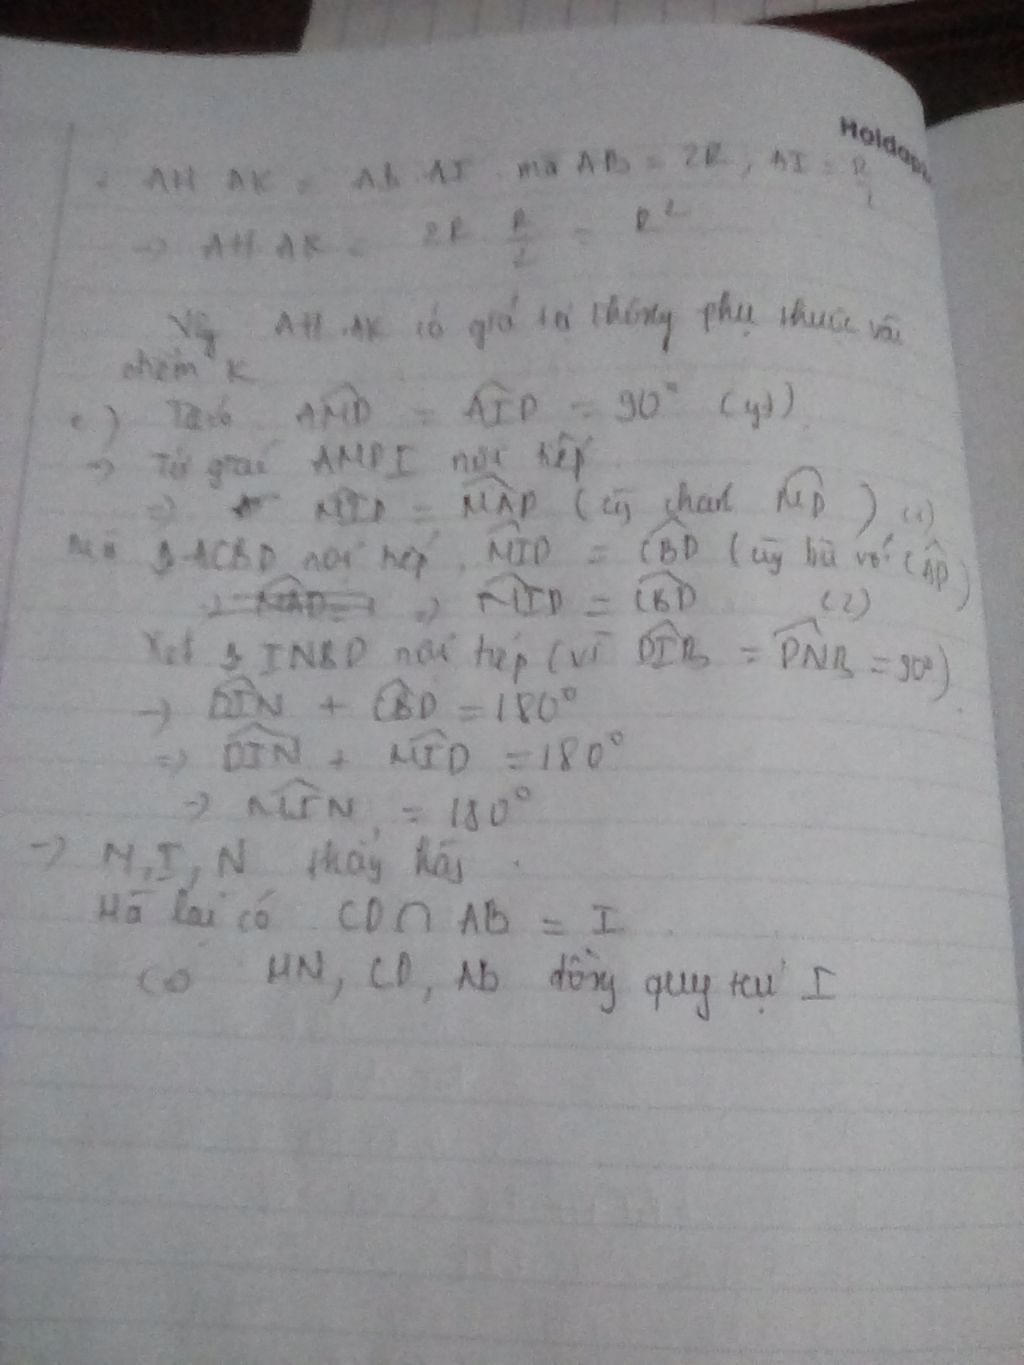 Holdap
AH.AK = AB.AI mà AB = 2R, AI = R/2
→ AH.AK = 2R.R/2 = R²
Vậy AH.AK có giá trị không phụ thuộc vào
điểm K
c) Ta có AMD = AID = 90° (gt)
→ Tứ giác AMDI nội tiếp
⇒ MID = MAD (cùng chắn MD) (1)
Mà ACBD nội tiếp, MID = CBD (cùng bù với CAD)
⇒ MID = CBD (2)
Xét INBD nội tiếp (vì DIB = DNB = 90°)
→ DIN + CBD = 180°
⇒ DIN + MID = 180°
→ MIN = 180°
→ M, I, N thẳng hàng
Mà lại có CD ∩ AB = I
MN, CD, AB đồng quy tại I